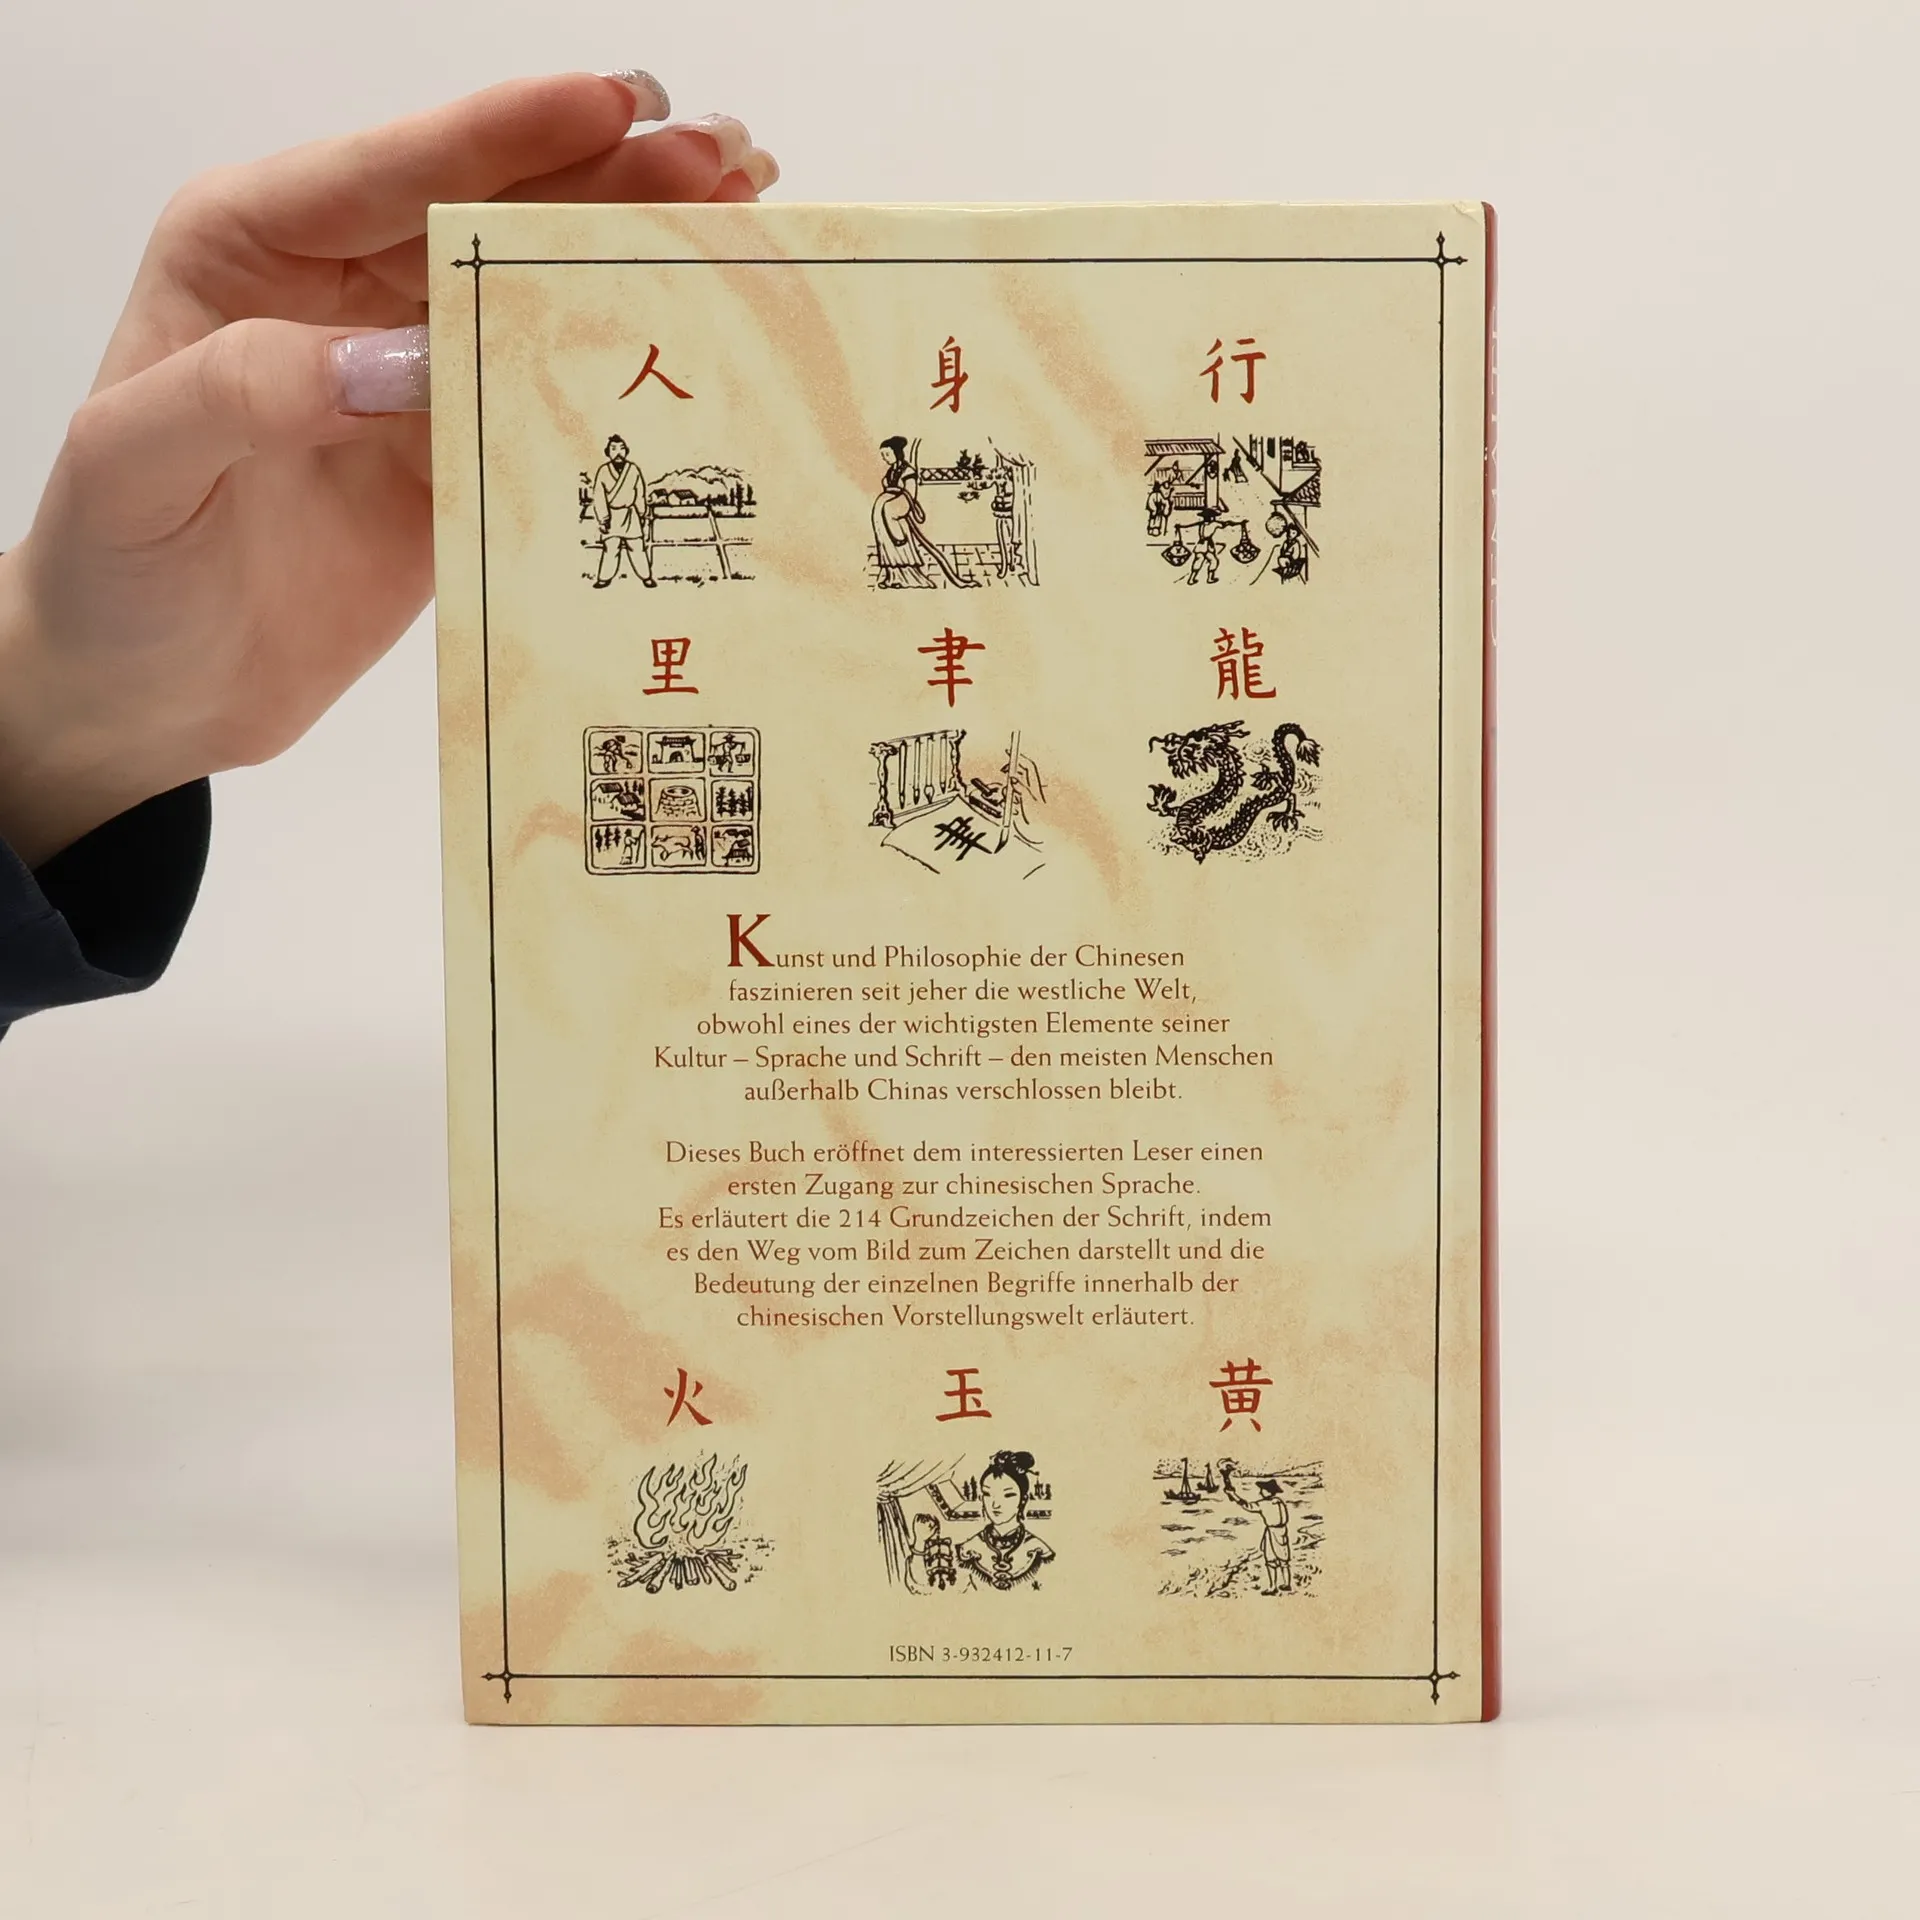 人 身 行
里 聿 龍
聿
Kunst und Philosophie der Chinesen
faszinieren seit jeher die westliche Welt,
obwohl eines der wichtigsten Elemente seiner
Kultur – Sprache und Schrift – den meisten Menschen
außerhalb Chinas verschlossen bleibt.
Dieses Buch eröffnet dem interessierten Leser einen
ersten Zugang zur chinesischen Sprache.
Es erläutert die 214 Grundzeichen der Schrift, indem
es den Weg vom Bild zum Zeichen darstellt und die
Bedeutung der einzelnen Begriffe innerhalb der
chinesischen Vorstellungswelt erläutert.
火 玉 黄
ISBN 3-932412-11-7